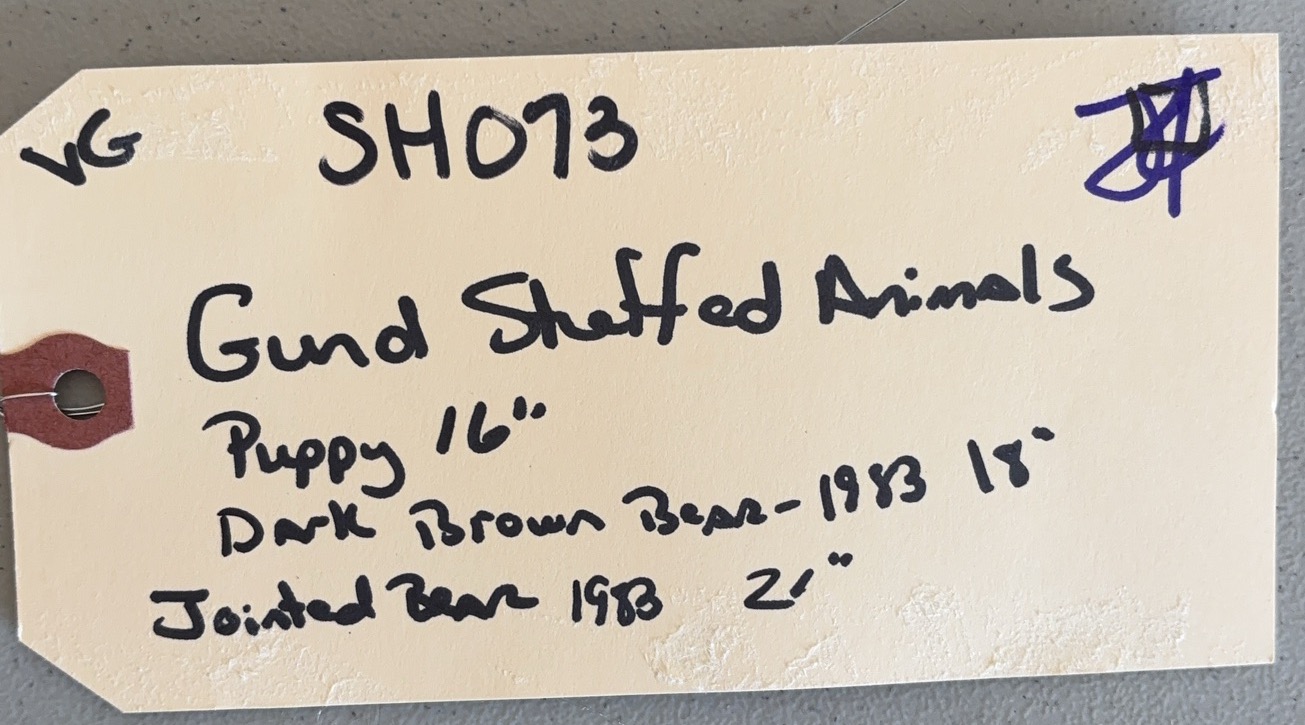 VG SH073
Gund Stuffed Animals
Puppy 16"
Dark Brown Bear - 1983 18"
Jointed Bear 1983 21"